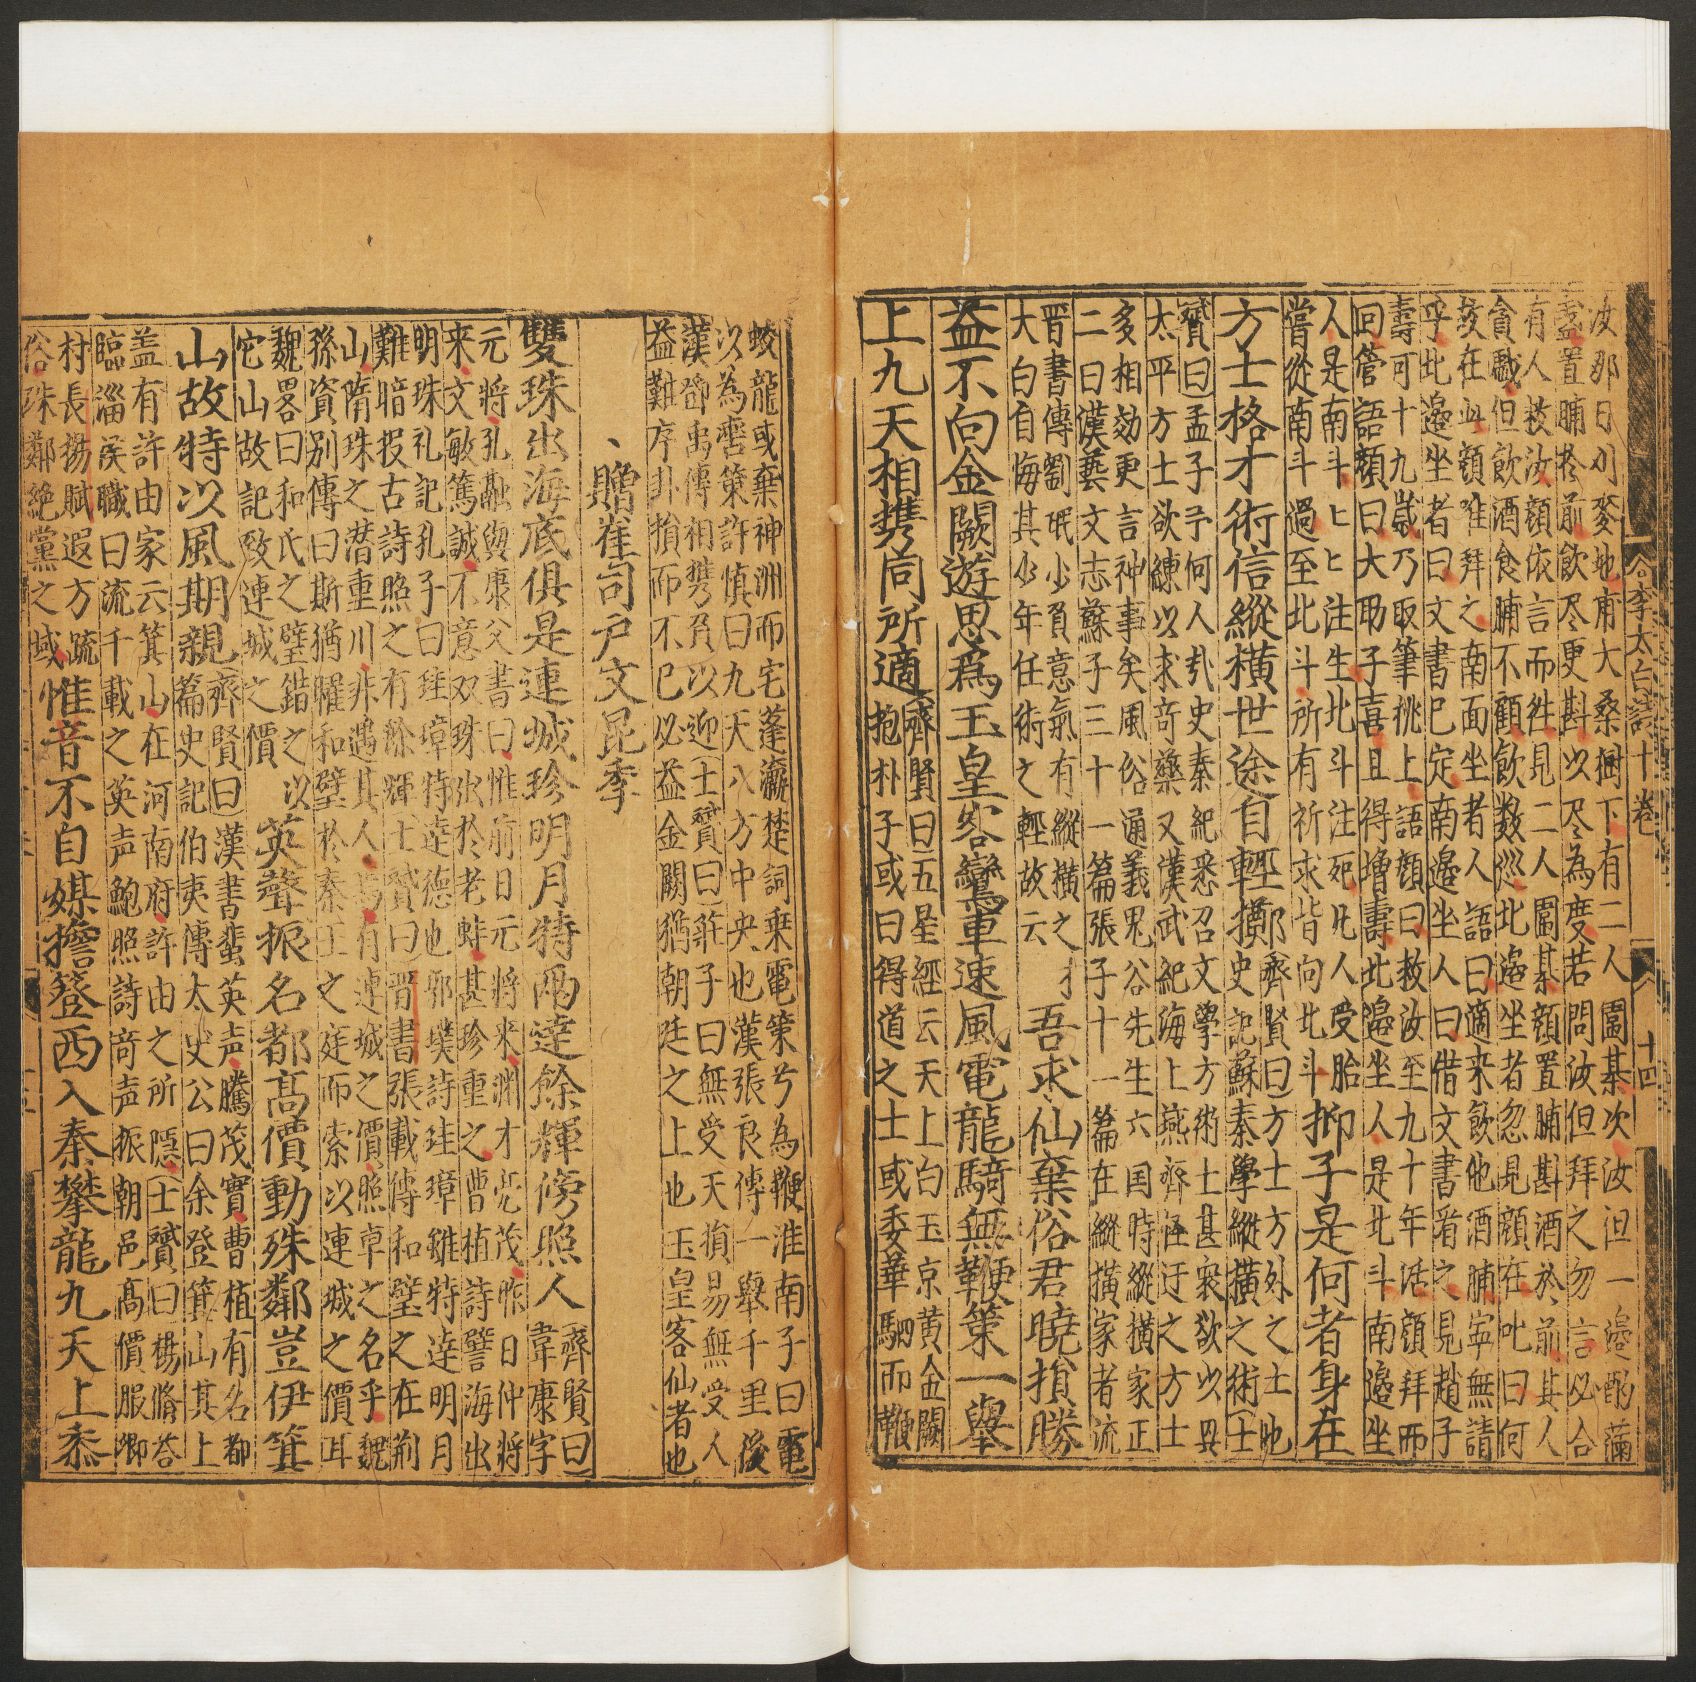 谷李太白詩十卷　十四
汝那日刈麥地甫大桑樹下有二人圍棊次汝但一邉酌滿
盞置脯於前飲尽更斟以尽為度若問汝但拜之勿言必合
有人救汝顔依言而徃見二人圍棊顔置脯斟酒於前其人
貪戲但飲酒食脯不顧飲數巡北邉坐者忽見顔在叱曰何
故在此顔唯拜之南面坐者人語曰適来飲他酒脯寧無請
乎北邉坐者曰文書已定南邉坐人曰借文書看之見趙子
壽可十九歲乃取筆挑上語顔曰救汝至九十年活顔拜而
回管語顔曰大助子喜且得增壽北邉坐人是北斗南邉坐
人是南斗匕匕注生北斗注死凡人受胎
嘗從南斗過至北斗所有祈求皆向北斗
抑子是何者身在
方士格才術信縱横世途自輕擲
齊賢曰方士方外之士也
史記蘇秦學縱横之術士
贇曰孟子予何人㢤史秦紀悉召文學方術士甚衆欲以興
太平方士欲練以求奇藥又漢武紀海上燕齊怪迂之方士
多相効更言神事矣風俗通義鬼谷先生六国時縱横家正
二曰漢藝文志蘇子三十一篇張子十一篇在縱横家者流
晋書傳劉珉少負意氣有縱横之才
大白自悔其少年任術之輕故云
吾求仙棄俗君曉損勝
益不向金闕遊思爲玉皇客鸞車速風電龍騎無鞭策一舉
上九天相携同所適
齊賢曰五星經云天上白玉京黄金闕
抱朴子或曰得道之士或委華駟而鞭
蛟龍或棄神洲而宅蓬瀛楚詞乗電策兮為鞭淮南子曰電
以為鞭策許慎曰九天八方中央也漢張良傳一舉千里後
漢郤禹傳相携負以迎士贇曰莊子曰無受天損易無受人
益難序卦損而不已必益金闕猶朝廷之上也玉皇客仙者也
贈崔司户文昆季
雙珠出海底俱是連城珍明月特两達餘輝傍照人
齊賢曰韋康字
元將孔融與康父書曰惟前日元將来渊才亮茂昨日仲將
来文敏篤誠不意双珠出於老蚌甚珍重之曹植詩譬海出
明珠礼記孔子曰珪璋特達德也郭璞詩珪璋雖特達明月
難暗投古詩照之有餘輝士贇曰晋書張載傳和璧之在荆
山隋珠之潜重川非遇其人焉有連城之價照車之名乎魏
孫資别傳曰斯猶曜和璧於秦王之庭而索以連城之價耳
魏畧曰和氏之璧錯之以
它山故記致連城之價
英聲振名都高價動殊鄰豈伊箕
山故特以風期親
齊賢曰漢書蜚英声騰茂實曹植有名都
篇史記伯夷傳太史公曰余登箕山其上
盖有許由家云箕山在河南府許由之所隱士贇曰楊脩荅
臨淄侯職曰流千載之英声鮑照詩奇声振朝邑高價服鄉
村長揚賦遐方疏
俗殊鄰絶黨之域
惟音不自媒擔簦西入秦攀龍九天上忝